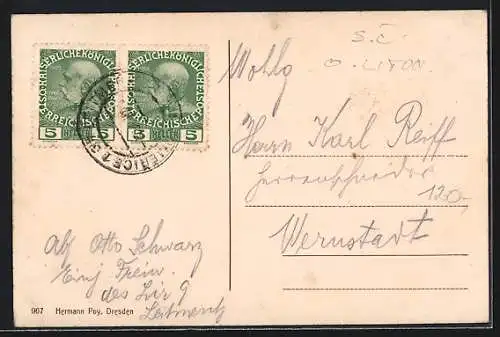 KAISERLICHE KÖNIGLICHE ÖSTERREICHISCHE
5 HELLER 5
KAISERLICHE KÖNIGLICHE ÖSTERREICHISCHE
5 HELLER 5
S.E.
LITOM.
Wohlg
Herrn Karl Reiff
Herrenschneider
120,-
Wernstadt
Abs Otto Schwarz
Einj Freiw.
des
9
Leitmeritz
907 Hermann Poy, Dresden